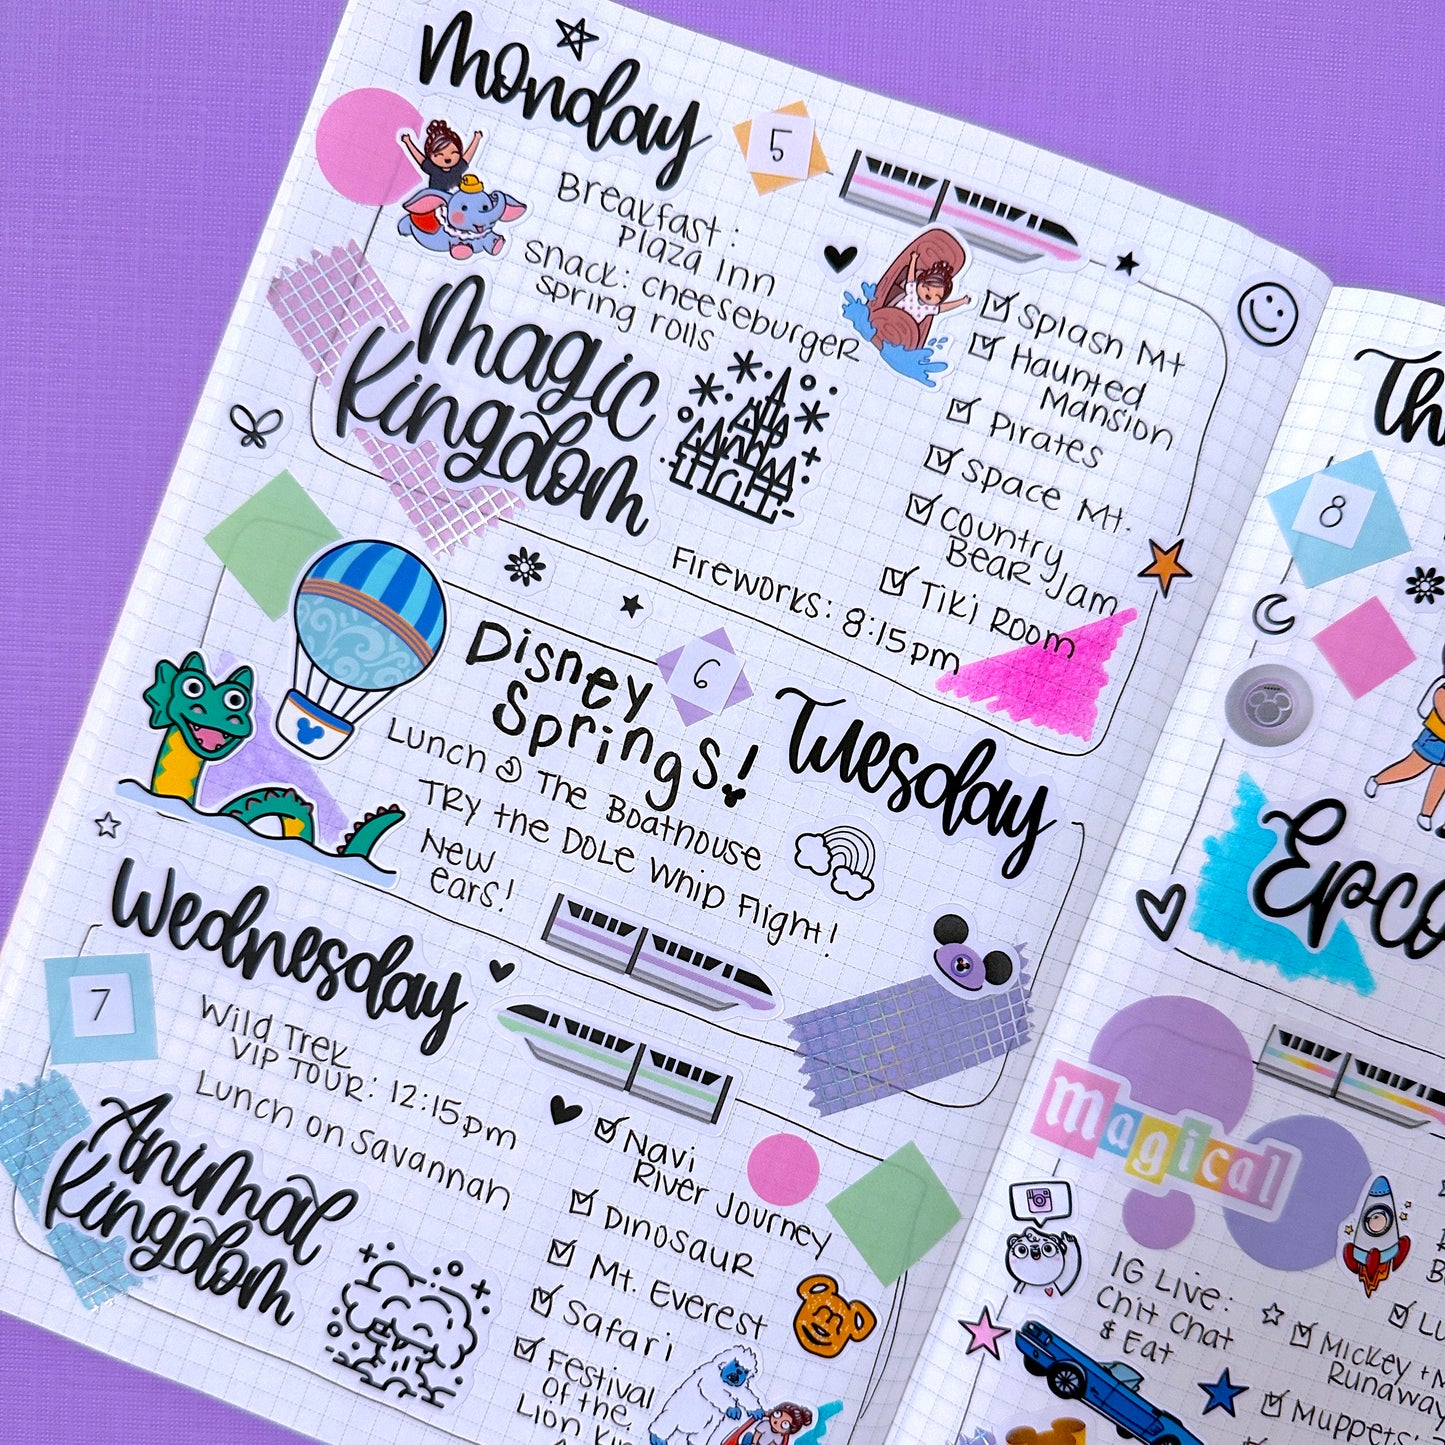 Monday
5
Breakfast:
Plaza Inn
Snack: cheeseburger
spring rolls
Magic
Kingdom
Splash Mt
Haunted
Mansion
Pirates
Space Mt.
Country
Bear Jam
Tiki Room
Fireworks: 8:15pm
Disney
Springs!
6
Tuesday
Lunch @ The Boathouse
Try the Dole Whip Flight!
New
ears!
Wednesday
7
Wild Trek
VIP Tour: 12:15pm
Lunch on Savannah
Animal
Kingdom
Navi
River Journey
Dinosaur
Mt. Everest
Safari
Festival
of the
Lion
8
magical
IG Live:
Chit Chat
& Eat
Mickey +
Runaway
Muppets